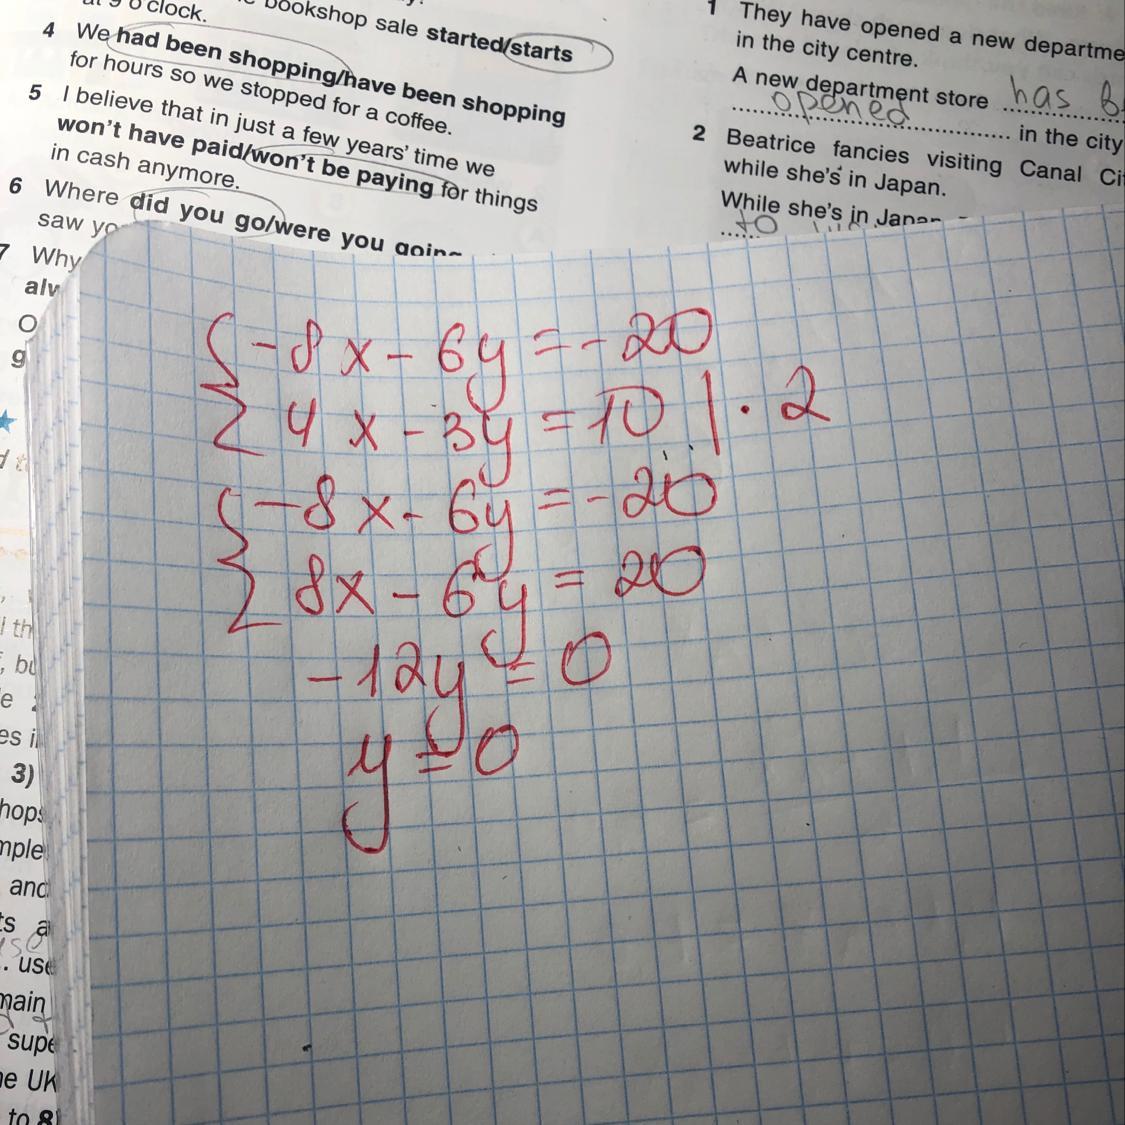 o'clock.
bookshop sale started/starts
4 We had been shopping/have been shopping
for hours so we stopped for a coffee.
5 I believe that in just a few years' time we
won't have paid/won't be paying for things
in cash anymore.
6 Where did you go/were you going
saw
7 Why
1 They have opened a new
in the city centre.
A new department store has
opened in the city
2 Beatrice fancies visiting Canal
while she's in Japan.
While she's in Japan
to
{-8x - 6y = -20
4x - 3y = 10 | · 2
{-8x - 6y = -20
8x - 6y = 20
-12y = 0
y = 0
3)
and
use
UK
to 8